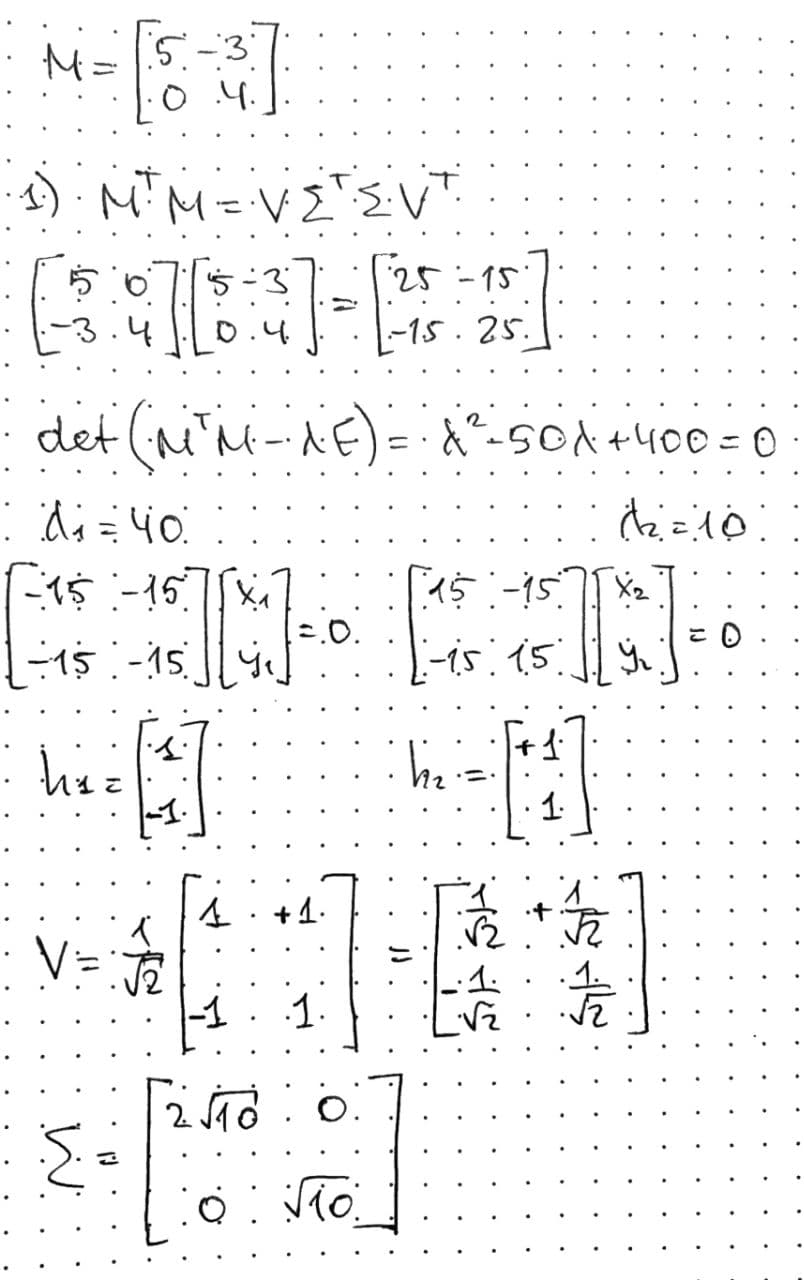 M = [5 -3; 0 4]
1) MᵀM = VΣᵀΣVᵀ
[5 0; -3 4][5 -3; 0 4] = [25 -15; -15 25]
det(MᵀM - λE) = λ² - 50λ + 400 = 0
λ₁ = 40 λ₂ = 10
[-15 -15; -15 -15][x₁; y₁] = 0 [15 -15; -15 15][x₂; y₂] = 0
h₁ = [1; -1] h₂ = [+1; 1]
V = 1/√2 [1 +1; -1 1] = [1/√2 +1/√2; -1/√2 1/√2]
Σ = [2√10 0; 0 √10]